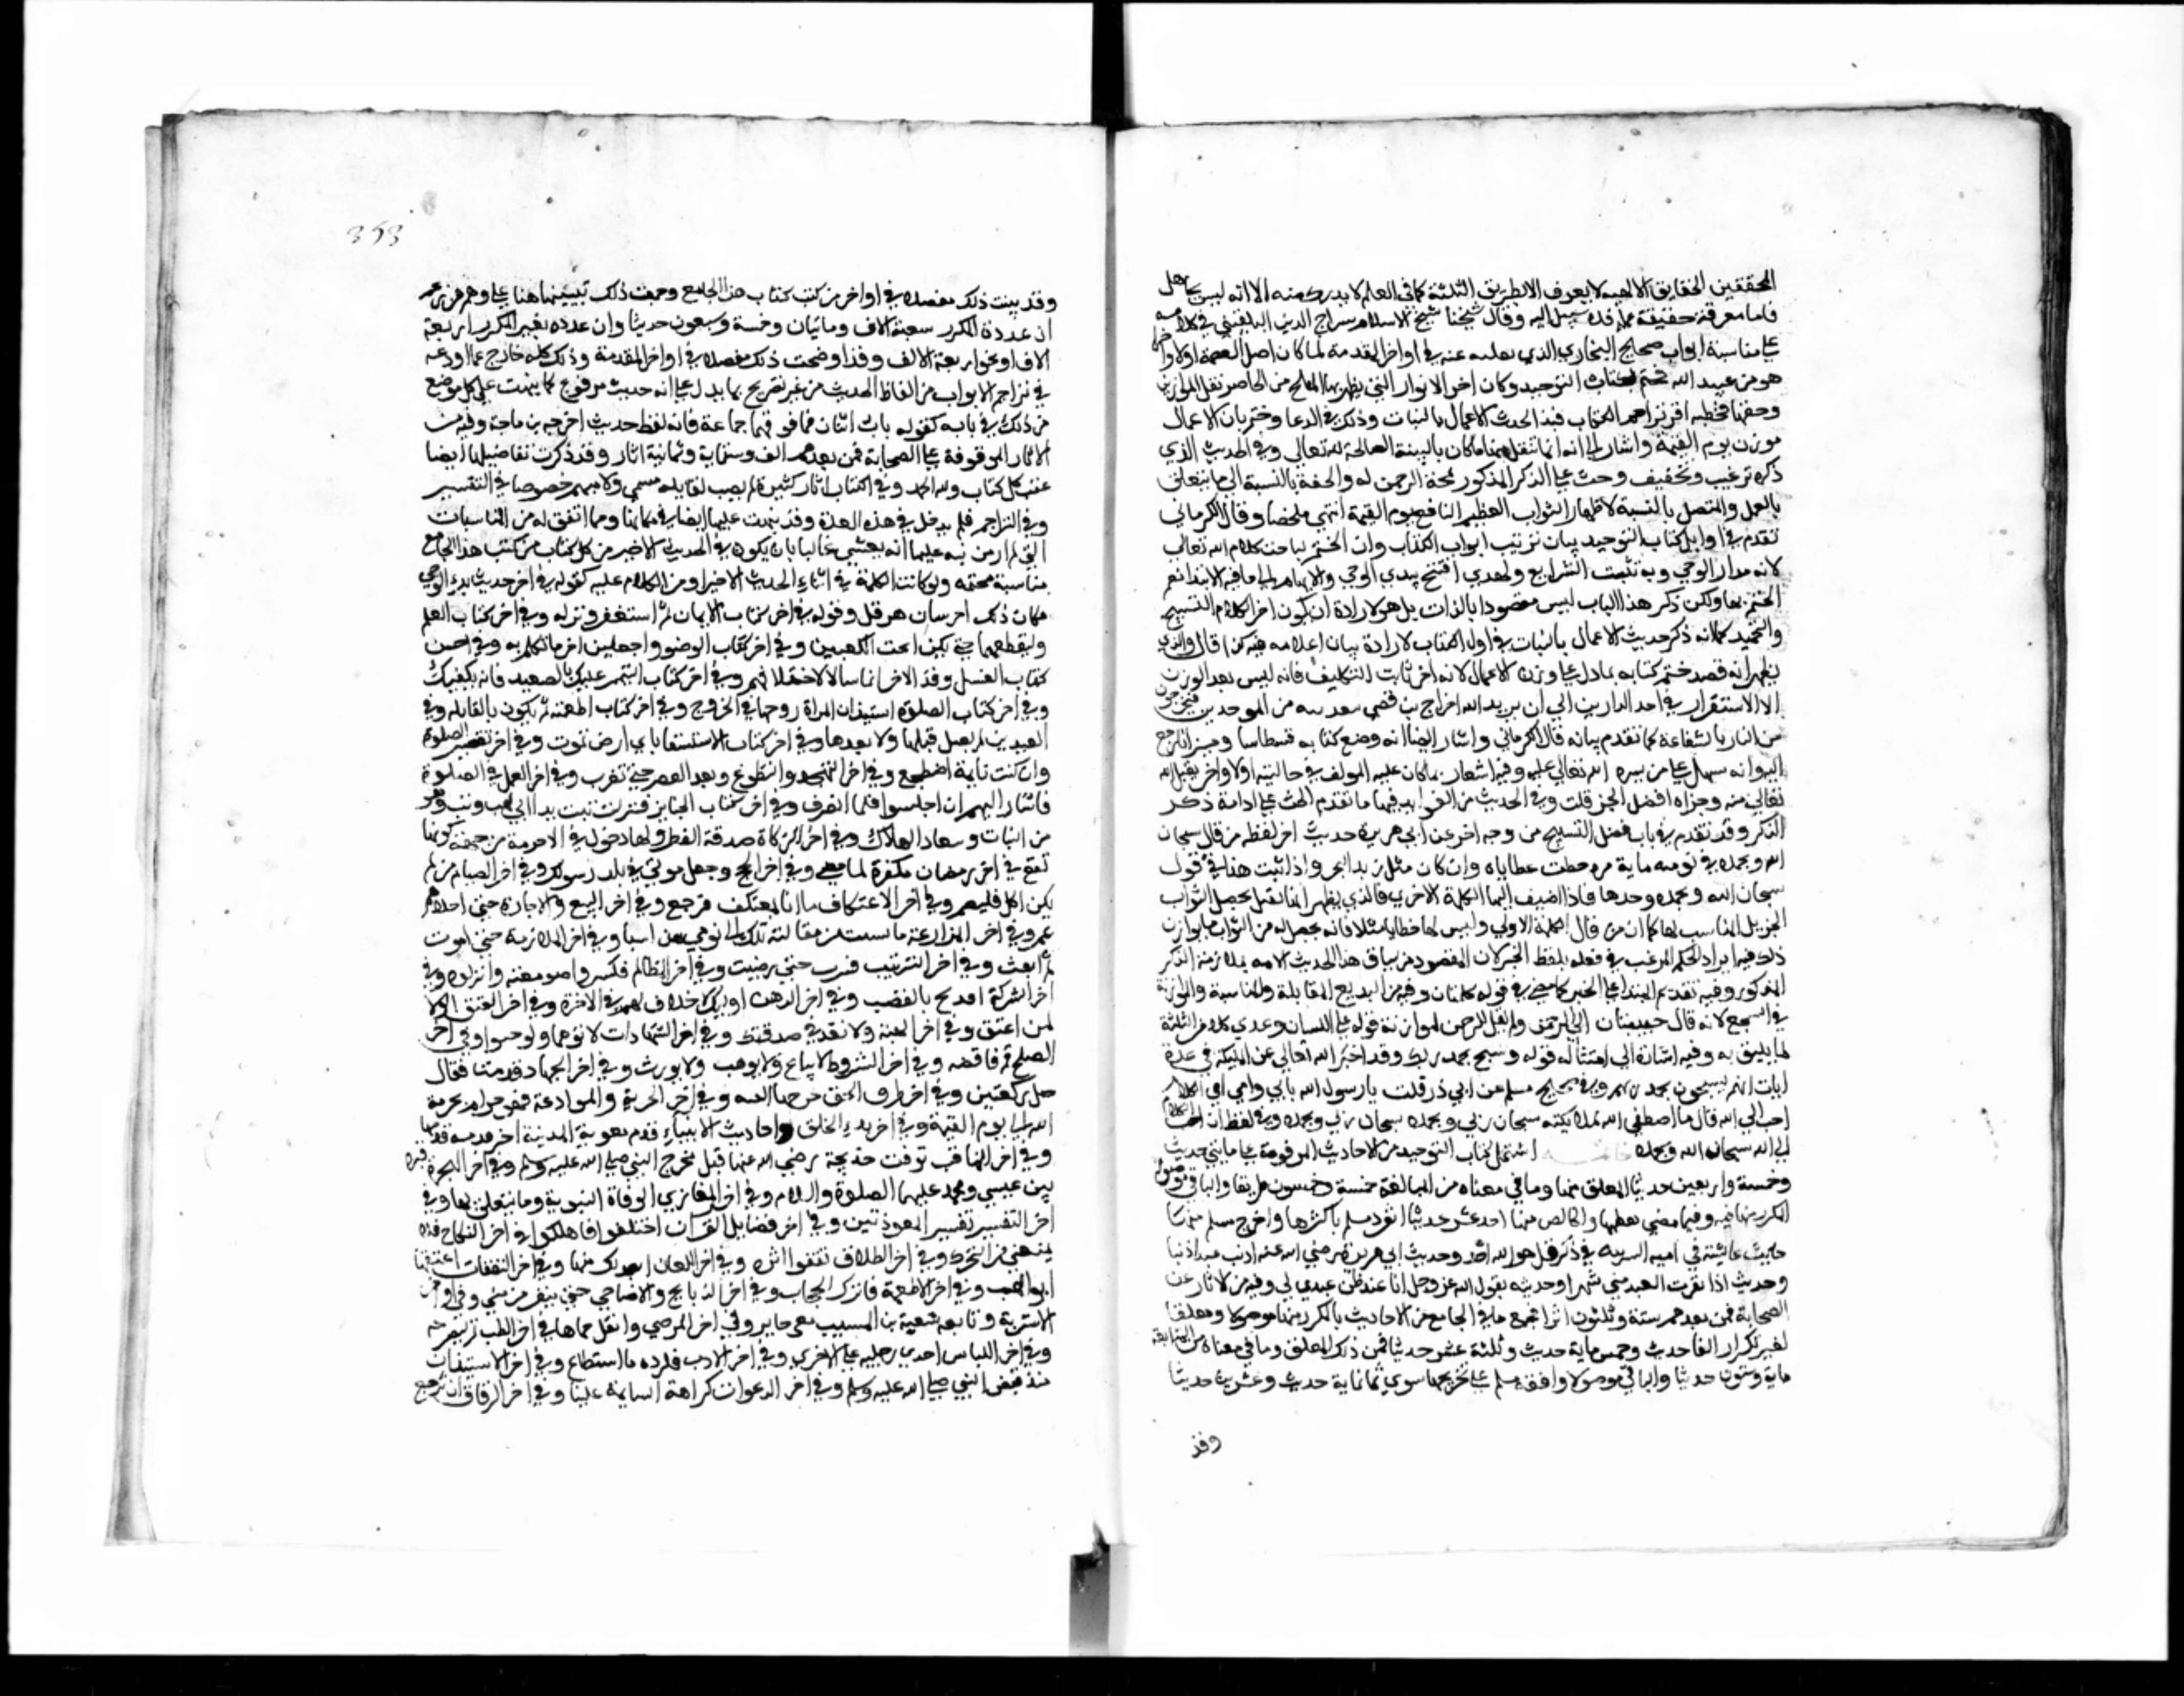 المحققين الحقايق الالهيه لا يعرف الا بطريق الثلثة كما في العلم لا يدرك منه الا انه ليس بجاهل
فاما معرفة حقيقة علمه فلا سبيل اليه وقال شيخنا شيخ الاسلام سراج الدين البلقيني في كلامه
على مناسبة ابواب صحيح البخاري الذي نقلته عنه في اواخر المقدمة لما كان اصل العصمة اولا واخرا
هو من عبيد الله ختم بكتاب التوحيد وكان اخر الانوار التي يظهر بها المفلح من الخاسر ثقل الموازين
وخفتها فخطبه اخر تراجم الكتاب فبدا لحديث الاعمال بالنيات وذلك في الدعا وختم بان الاعمال
توزن يوم القيمة واشار الى انه انما يثقل منها ما كان بالنية الصالحة لله تعالى وفي الحديث الذي
ذكره ترغيب وتخفيف وحث على الذكر المذكور لمحبة الرحمن له والخفة بالنسبة الى ما يتعلق
بالعمل والثقل بالنسبة لاظهار الثواب العظيم النافع يوم القيمة انتهى ملخصا وقال الكرماني
تقدم في اوايل كتاب التوحيد بيان ترتيب ابواب الكتاب وان الختم لمباحث كلام الله تعالى
لانه مدار الوحي وبه تثبت الشرايع ولهذا افتتح ببدي الوحي والانتهاء الى ما فيه الابتدا نعم
الختم بها ولكن ذكر هذا الباب ليس مقصودا بالذات بل هو لارادة ان يكون اخر الكلام التسبيح
والتحميد كما انه ذكر حديث الاعمال بالنيات في اول الكتاب لارادة بيان اخلاصه فيه كذا قال والذي
يظهر انه قصد ختم كتابه بما دل على وزن الاعمال لانه اخر ثابت التكليف فانه ليس بعد الوزن
الا الاستقرار في احد الدارين الى ان يريد الله اخراج من قضى بتعذيبه من الموحدين فيخرجون
من النار بالشفاعة كما تقدم بيانه قال الكرماني واشار ايضا انه وضع كتابه قسطاسا وميزانا يرجع
اليه وانه سهل على من يسره الله تعالى عليه وفيه اشعار بما كان عليه المولف في حالتيه اولا واخرا يقبل الله
تعالى منه وجزاه افضل الجزا قلت وفي الحديث من الفوايد فيها ما تقدم الحث على ادامة ذكر
الذكر وقد تقدم في باب فضل التسبيح من وجه اخر عن ابي هريرة حديث اخر لفظه من قال سبحان
الله وبحمده في يومه ماية مره حطت خطاياه وان كان مثل زبد البحر واذا ثبت هذا في قول
سبحان الله وبحمده وحدها فاذا اضيف اليها الكلمة الاخري فالذي يظهر انها تقبل تحصل الثواب
الجزيل المناسب لها كما ان من قال الكلمة الاولي وليس لها خطايا مثلا فانه يحصل له من الثواب ما يوازن
ذلك فيه ايراد الحكم المرغب في فعله بلفظ الخبر لان المقصود من سياق هذا الحديث الامر بملازمة الذكر
المذكور وفيه تقديم المبتدا على الخبر كما مضى في قوله كلمتان وفيه من البديع المقابلة والمناسبة والموازنة
في السجع لانه قال حبيبتان الى الرحمن ولم يقل للرحمن لموازنة قوله على اللسان وعدي كلا من الثلثة
لما يليق به وفيه اشارة الى امتثال قوله وسبح بحمد ربك وقد اخبر الله تعالى عن المليكة في عدة
ايات انهم يسبحون بحمد ربهم وفي صحيح مسلم عن ابي ذر قلت يا رسول الله بابي وامي اي الكلام
احب الى الله قال ما اصطفى الله لملائكته سبحان ربي وبحمده سبحان ربي وبحمده وفي لفظ ان احب الكلام
الى الله سبحان الله وبحمده اشتمل كتاب التوحيد من الاحاديث المرفوعة على مايتي حديث
وخمسة واربعين حديثا المعلق منها وما في معناه من المبالغة خمسة وخمسون طريقا والباقي موصول
المكرر منها فيه وفيما مضى معظمها والخالص منها احد عشر حديثا انفرد مسلم باكثرها واخرج مسلم منها
حديث عائشة في امير السرية في ذكر قل هو الله احد وحديث ابي هريرة رضي الله عنه اذنب عبد ذنبا
وحديث اذا تقرب العبد مني شبرا وحديثه يقول الله عز وجل انا عند ظن عبدي بي وفيه من الاثار عن
الصحابة فمن بعدهم ستة وثلثون اثرا فجميع ما في الجامع من الاحاديث بالمكرر منها موصولا ومعلقا
لغير تكرار الفا حديث وخمس ماية حديث وثلثة عشر حديثا فمن ذلك المعلق وما في معناه من المتابعة
ماية وستون حديثا والباقي موصولا وافقه مسلم على تخريجها سوى ثمانماية حديث وعشرين حديثا
وقد
353
وقد بينت ذلك مفصلا في اواخر من كتب كتاب هذا الجامع وجمعت ذلك تبيينها هنا على وهم من زعم
ان عدده المكرر سبعة الاف ومايتان وخمسة وسبعون حديثا وان عدده بغير المكرر اربعة
الاف او نحو اربعة الاف وقد اوضحت ذلك مفصلا في اواخر المقدمة وذلك كله خارج عما اودعه
في تراجم الابواب من الفاظ الحديث من غير تصريح بما يدل على انه حديث مرفوع كما نبهت على كل موضع
من ذلك في بابه كقوله باب اثنان فما فوقهما جماعة فانه لفظ حديث اخرجه بن ماجة وفيه من
الاثار الموقوفة على الصحابة فمن بعدهم الف وستماية وثمانية اثار وقد ذكرت تفاصيلها ايضا
عقب كل كتاب ولله الحمد وفي الكتاب اثار كثيرة لم يصب لقايله مسمى ولا مبهم خصوصا في التفسير
وفي التراجم فلم يدخل في هذه العدة وقد نبهت عليها ايضا في مكانها ومما اتفق له من المناسبات
التي لم ار من نبه عليها انه يعتني غالبا بان يكون في الحديث الاخير من كل كتاب من كتب هذا الجامع
مناسبة لختمه ولو كانت الكلمة في اثناء الحديث الاخير او من الكلام عليه كقوله في اخر حديث بدء الوحي
فكان ذلك اخر شان هرقل وقوله في اخر كتاب الايمان ثم استغفر ونزل وفي اخر كتاب العلم
وليقطعهما حتى يكونا تحت الكعبين وفي اخر كتاب الوضوء واجعلهن اخر ما تكلم به وفي اخر
كتاب الغسل وقد الاخر انما بيناه لاختلافهم وفي اخر كتاب التيمم عليك بالصعيد فانه يكفيك
وفي اخر كتاب الصلوة استيذان المراة زوجها في الخروج وفي اخر كتاب الجمعة ثم يكون بالقايلة وفي
العيدين لم يصل قبلها ولا بعدها وفي اخر كتاب الاستسقا باي ارض تموت وفي اخر تقصير الصلوة
وان كنت نايمة اضطجع وفي اخر التهجد والتطوع وبعد العصر حتى تغرب وفي اخر العمل في الصلوة
فاشار اليهم ان اجلسوا فلما انصرف وفي اخر كتاب الجنايز فنزلت تبت يدا ابي لهب وتب وهو
من التباب ومعناه الهلاك وفي اخر الزكاة صدقة الفطر ولها دخول في الاخرية من جهة كونها
تقع في اخر رمضان مكفرة لما مضى وفي اخر الحج وجعل موتي في بلد رسولك وفي اخر الصيام من لم
يكن اكل فليصم وفي اخر الاعتكاف ما انا بمعتكف فرجع وفي اخر البيع والاجارة حتى اجلاهم
عمر وفي اخر المزارعة ما نسيت من مقالته تلك الى يومي هذا شيئا وفي اخر الملازمة حتى اموت
ثم ابعث وفي اخر الشرب فشرب حتى رضيت وفي اخر المظالم فكسروا صومعته وانزلوه وفي
اخر الشركة افنذبح بالقصب وفي اخر الرهن اوليك لا خلاق لهم في الاخرة وفي اخر العتق الولا
لمن اعتق وفي اخر الهبة ولا تعد في صدقتك وفي اخر الشهادات لاتوهما ولو حبوا وفي اخر
الصلح قم فاقضه وفي اخر الشروط لا يباع ولا يوهب ولا يورث وفي اخر الجهاد قدمت فقال
صل ركعتين وفي اخر الجزية والموادعة فهو حرام بحرمة
الله الى يوم القيمة وفي اخر بدء الخلق واحاديث الانبياء قدم معوية المدينة اخر قدمة قدمها
وفي اخر المناقب توفيت خديجة رضي الله عنها قبل مخرج النبي صلى الله عليه وسلم وفي اخر الهجرة فترة
بين عيسى ومحمد عليهما الصلوة والسلام وفي اخر المغازي الوفاة النبوية وما يتعلق بها وفي
اخر التفسير تفسير المعوذتين وفي اخر فضايل القران اختلفوا فاهلكوا وفي اخر النكاح فلا
يمنعني من التحرك وفي اخر الطلاق تقفوا اثره وفي اخر اللعان ابعد لك منها وفي اخر النفقات اعتقها
ابو لهب وفي اخر الاطعمة فانزل الحجاب وفي اخر الذبايح والاضاحي حتى ينفر من منى وفي اخر
الاشربة وتابعه سعيد بن المسيب عن جابر وفي اخر المرضى وانقل حماها وفي اخر الطب ثم ليطرحه
وفي اخر اللباس احدى رجليه على الاخرى وفي اخر الادب فليرده ما استطاع وفي اخر الاستيذان
منذ قبض النبي صلى الله عليه وسلم وفي اخر الدعوات كراهة السامة علينا وفي اخر الرقاق ان نرجع